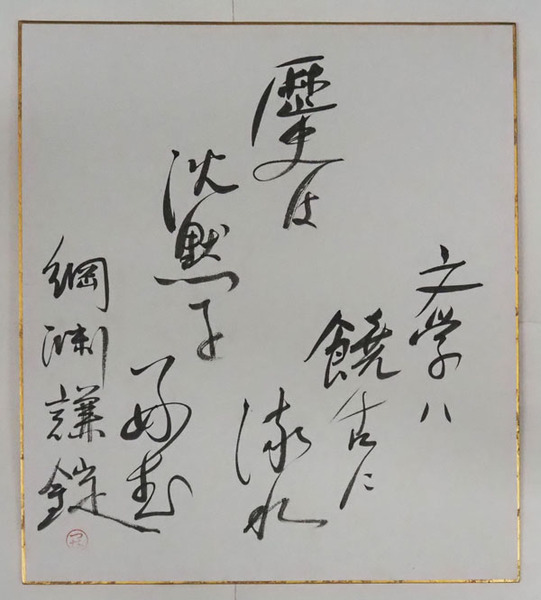 文学ハ
饒舌に
流れ
歴史は
沈黙を
好む
綱淵謙錠